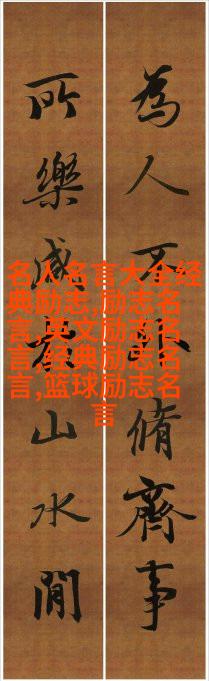 為人不外脩齊事
所樂咸在山水間
名人名言大全经
典励志,励志名
言,英文励志名
言,经典励志名
言,篮球励志名
言